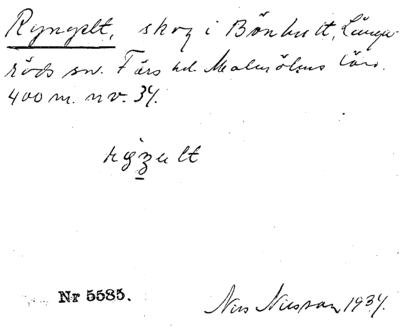 Ryngelt, skog i Bönhult, Långa-
röds sn. Färs hd. Malmöhus län.
400 m. nv. 34.
Nr 5585.
Nils Nilsson 1934.